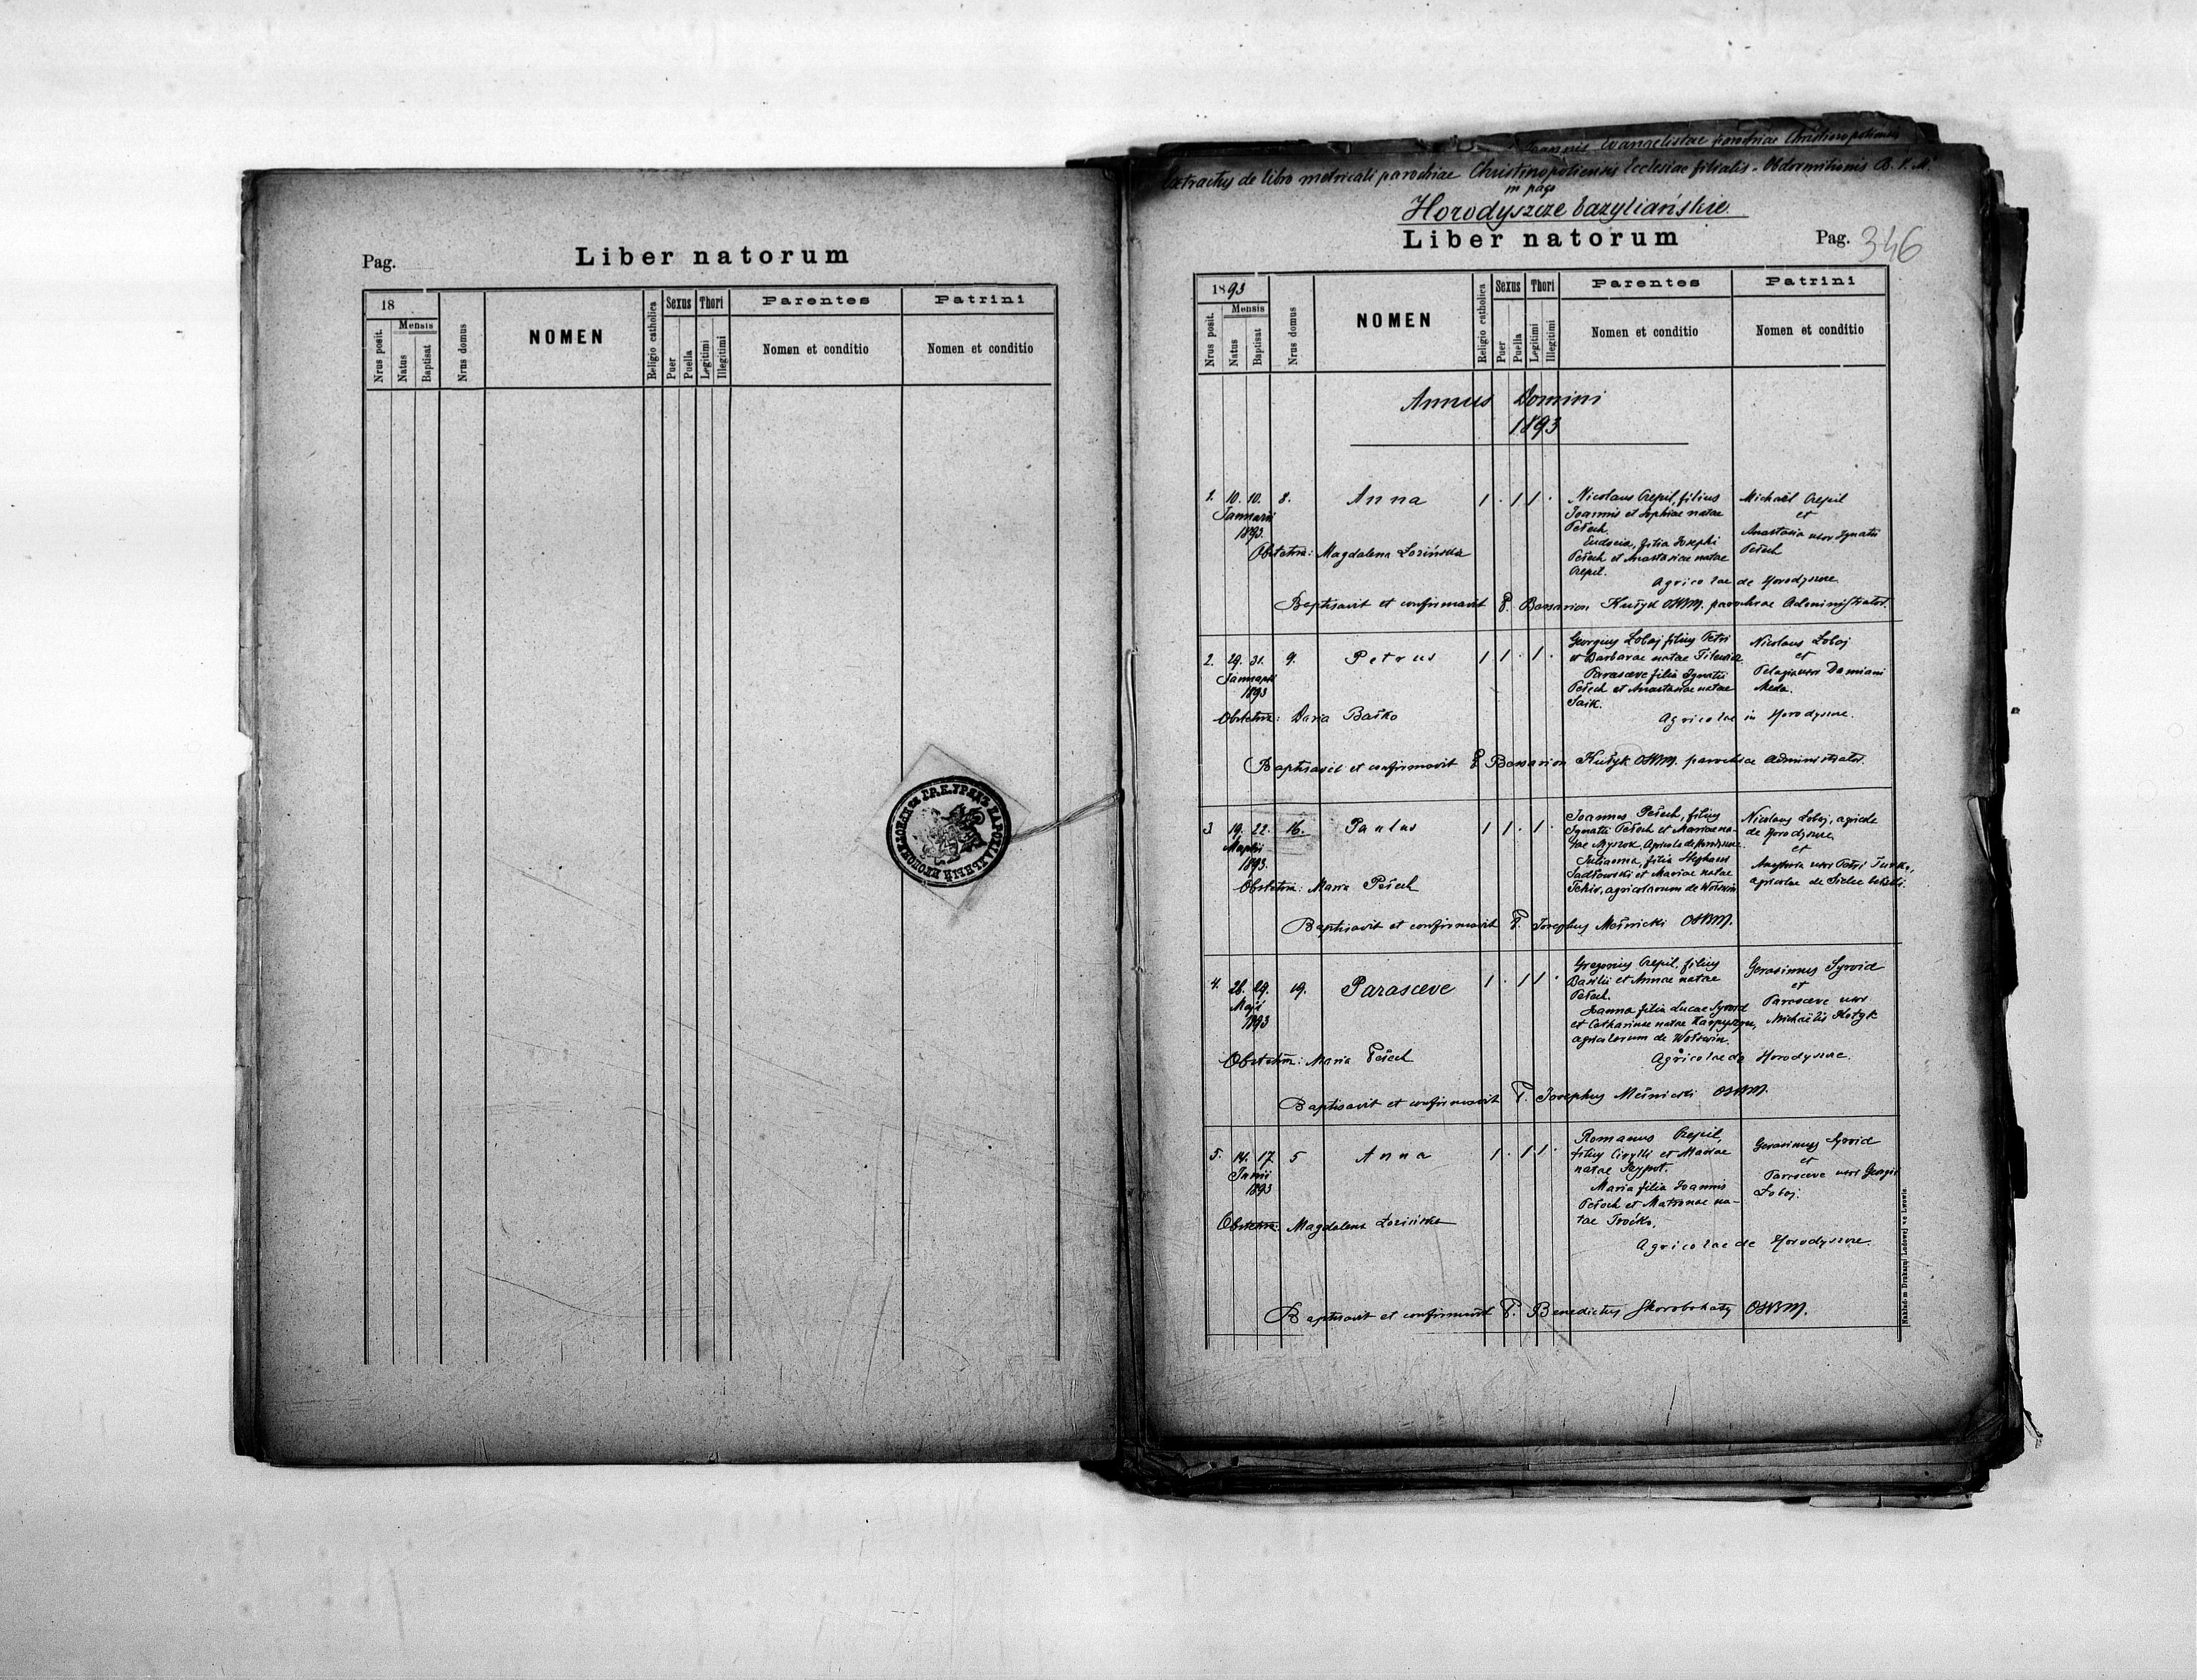 Liber natorum
Pag.
18
Mensis
Nrus posit.
Natus
Baptisat
Nrus domus
NOMEN
Religio catholica
Sexus
Puer
Puella
Thori
Legitimi
Illegitimi
Parentes
Nomen et conditio
Patrini
Nomen et conditio
Joannis Evangelistae parochiae Christinopoliensis
Extractus de libro metricali parochiae Christinopoliensis Ecclesiae filialis - Obdormitionis B. V. M.
in pago
Horodyszcze bazyliańskie.
Liber natorum
Pag. 346
1893
Mensis
Nrus posit.
Natus
Baptisat
Nrus domus
NOMEN
Religio catholica
Sexus
Puer
Puella
Thori
Legitimi
Illegitimi
Parentes
Nomen et conditio
Patrini
Nomen et conditio
Annus Domini
1893
1. 10. 10. 8. Anna 1 . 1 1 .
Januarii
1893.
Nicolaus Czepil, filius
Joannis et Sophiae natae
Pełech.
Eudocia, filia Josephi
Pełech et Anastasiae natae
Czepil.
Michaël Czepil
et
Anastasia uxor Ignatii
Pełech
Obstetrix: Magdalena Łozińska
Agricolae de Horodyszcze
Baptisavit et confirmavit P. Bessarion Kułyk OSBM. parochiae Administrator.
2. 29. 31. 9. Petrus 1 1 . 1 .
Januarii
1893
Georgius Łobaj filius Petri
et Barbarae natae
Parasceve filia Ignatii
Pełech et Anastasiae natae
Saik.
Nicolaus Łobaj
et
Pelagia uxor Damiani
Meda.
Obstetrix: Daria Baśko
Agricolae in Horodyszcze.
Baptisavit et confirmavit P. Bessarion Kułyk OSBM. parochiae Administrator.
3 19. 22. 16. Paulus 1 1 . 1 .
Martii
1893.
Joannes Pełech, filius
Ignatii Pełech et Mariae na-
tae Myszok, Agricola de Horodyszcze
Julianna, filia Stephani
Sadłowski et Mariae natae
agricolarum de Wołświn
Nicolaus Łobaj, agricola
de Horodyszcze
et
uxor Petri
agricolae de Sielec
Obstetrix: Maria Pełech
Baptisavit et confirmavit P. Josephus Meśnicki OSBM.
4. 28. 29. 19. Parasceve 1 . 1 1 .
Maji
1893
Gregorius Czepil, filius
Basilii et Annae natae
Pełech.
Joanna filia Lucae Syrvid
et Catharinae natae
agricolarum de Wołświn.
Gerasimus Syrvid
et
Parasceve uxor
Michaëlis Kotyk
Obstetrix: Maria Pełech
Agricolae de Horodyszcze.
Baptisavit et confirmavit P. Josephus Meśnicki OSBM.
5. 14. 17 5 Anna 1 . 1 1 .
Junii
1893
Romanus Czepil,
filius Cirylli et Mariae
natae
Maria filia Joannis
Pełech et Matronae na-
tae
Gerasimus Syrvid
et
Parasceve uxor Georgii
Łobaj.
Obstetrix: Magdalena Łozińska
Agricolae de Horodyszcze.
Baptisavit et confirmavit P. Benedictus Skorobohaty OSBM.